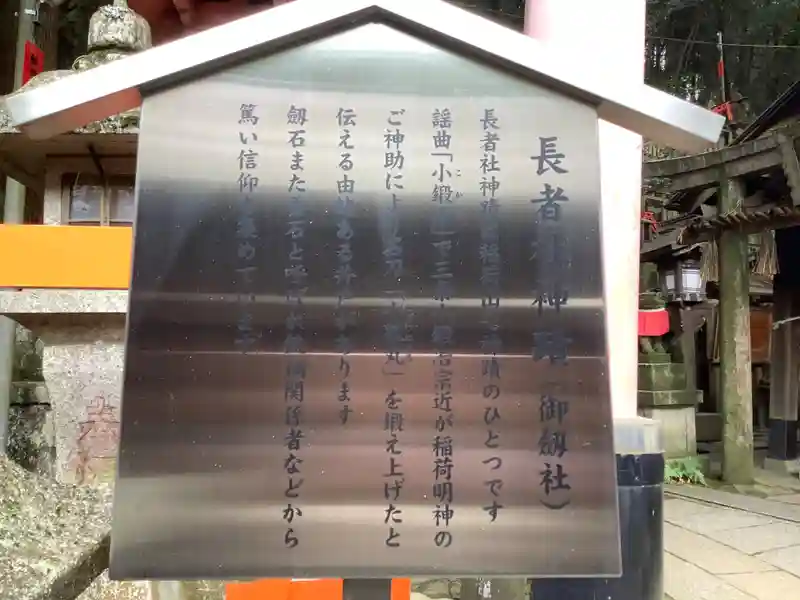 長者社神蹟(御劔社)
長者社神蹟は稲荷山七神蹟のひとつです
謡曲「小鍛冶」で三条小鍛冶宗近が稲荷明神の
こか
ご神助により名刀「小狐丸」を鍛え上げたと
伝える由緒ある井戸があります
劔石また雷石と呼ばれ 関係者などから
篤い信仰を集めています